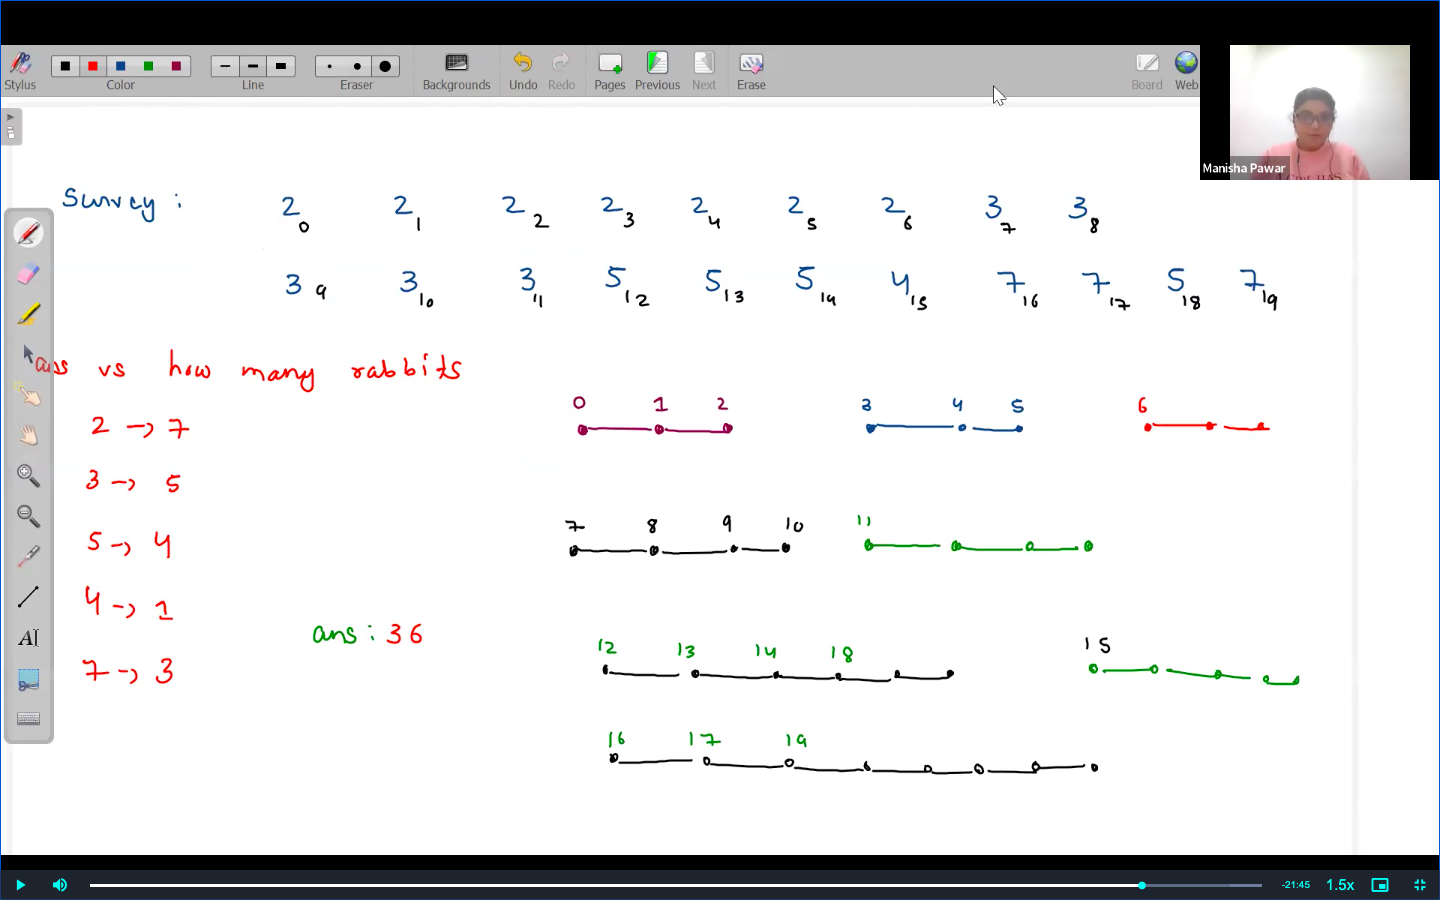 Stylus Color Line Eraser Backgrounds Undo Redo Pages Previous Next Erase Board Web
Manisha Pawar
Survey : 2 0 2 1 2 2 2 3 2 4 2 5 2 6 3 7 3 8
3 9 3 10 3 11 5 12 5 13 5 14 4 15 7 16 7 17 5 18 7 19
ans vs how many rabbits
0 1 2 3 4 5 6
2 → 7
3 → 5
7 8 9 10 11
5 → 4
4 → 1
ans : 36
12 13 14 18 15
7 → 3
16 17 19
AI
-21:45 1.5x